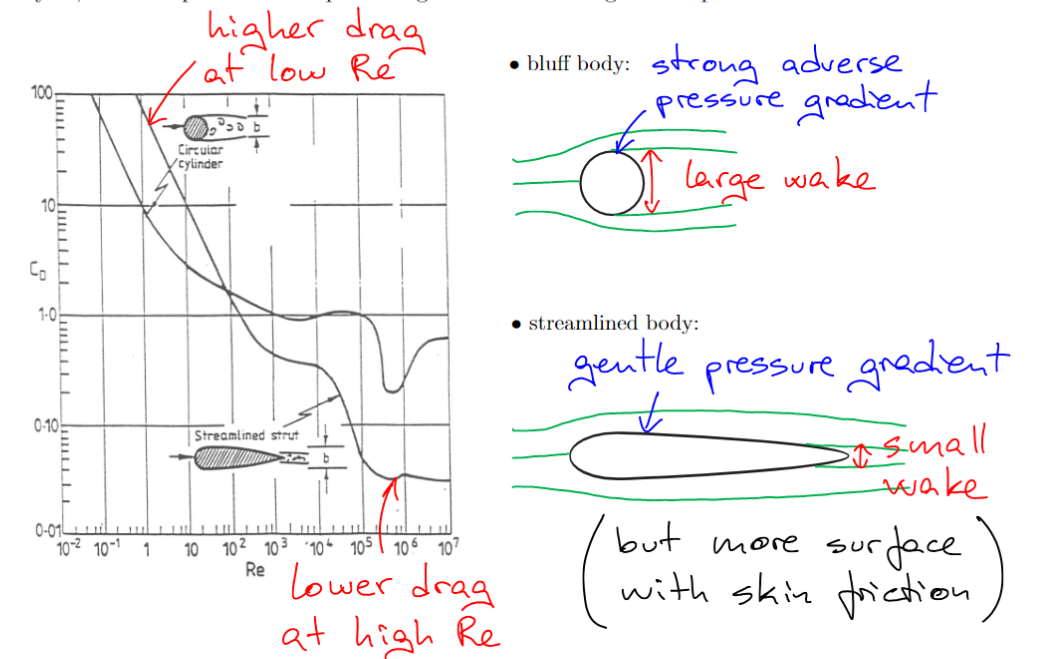 higher drag
at low Re
100
10
1·0
0·10
0·01
C_D
b
Circular
cylinder
Streamlined strut
b
10⁻²
10⁻¹
1
10
10²
10³
10⁴
10⁵
10⁶
10⁷
Re
lower drag
at high Re
• bluff body:
strong adverse
pressure gradient
large wake
• streamlined body:
gentle pressure gradient
small
wake
(but more surface
with skin friction)